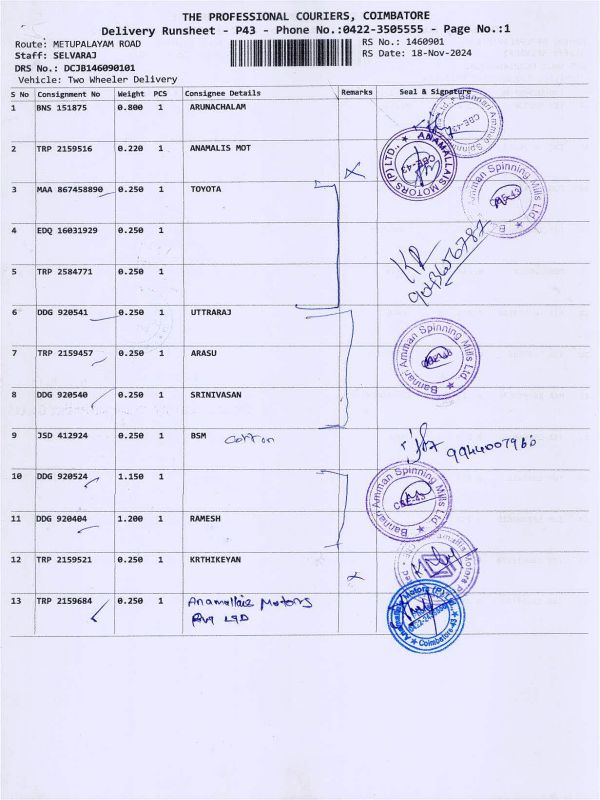 THE PROFESSIONAL COURIERS, COIMBATORE
Delivery Runsheet - P43 - Phone No.:0422-3505555 - Page No.:1
Route: METUPALAYAM ROAD
RS No.: 1460901
Staff: SELVARAJ
RS Date: 18-Nov-2024
DRS No.: DCJB146090101
Vehicle: Two Wheeler Delivery
S No Consignment No Weight PCS Consignee Details Remarks Seal & Signature
1 BNS 151875 0.800 1 ARUNACHALAM
2 TRP 2159516 0.220 1 ANAMALIS MOT
ANAMALLAIS MOTORS (P) LTD., CBE-43
3 MAA 867458890 0.250 1 TOYOTA
Bannari Amman Spinning Mills Ltd
4 EDQ 16031929 0.250 1
5 TRP 2584771 0.250 1
6 DDG 920541 0.250 1 UTTRARAJ
7 TRP 2159457 0.250 1 ARASU
Bannari Amman Spinning Mills Ltd
8 DDG 920540 0.250 1 SRINIVASAN
9 JSD 412924 0.250 1 BSM cotton
10 DDG 920524 1.150 1
Bannari Amman Spinning Mills Ltd CBE-43
11 DDG 920404 1.200 1 RAMESH
12 TRP 2159521 0.250 1 KRTHIKEYAN
13 TRP 2159684 0.250 1 Anamallais Motors
Pvt LTD
Coimbatore-43